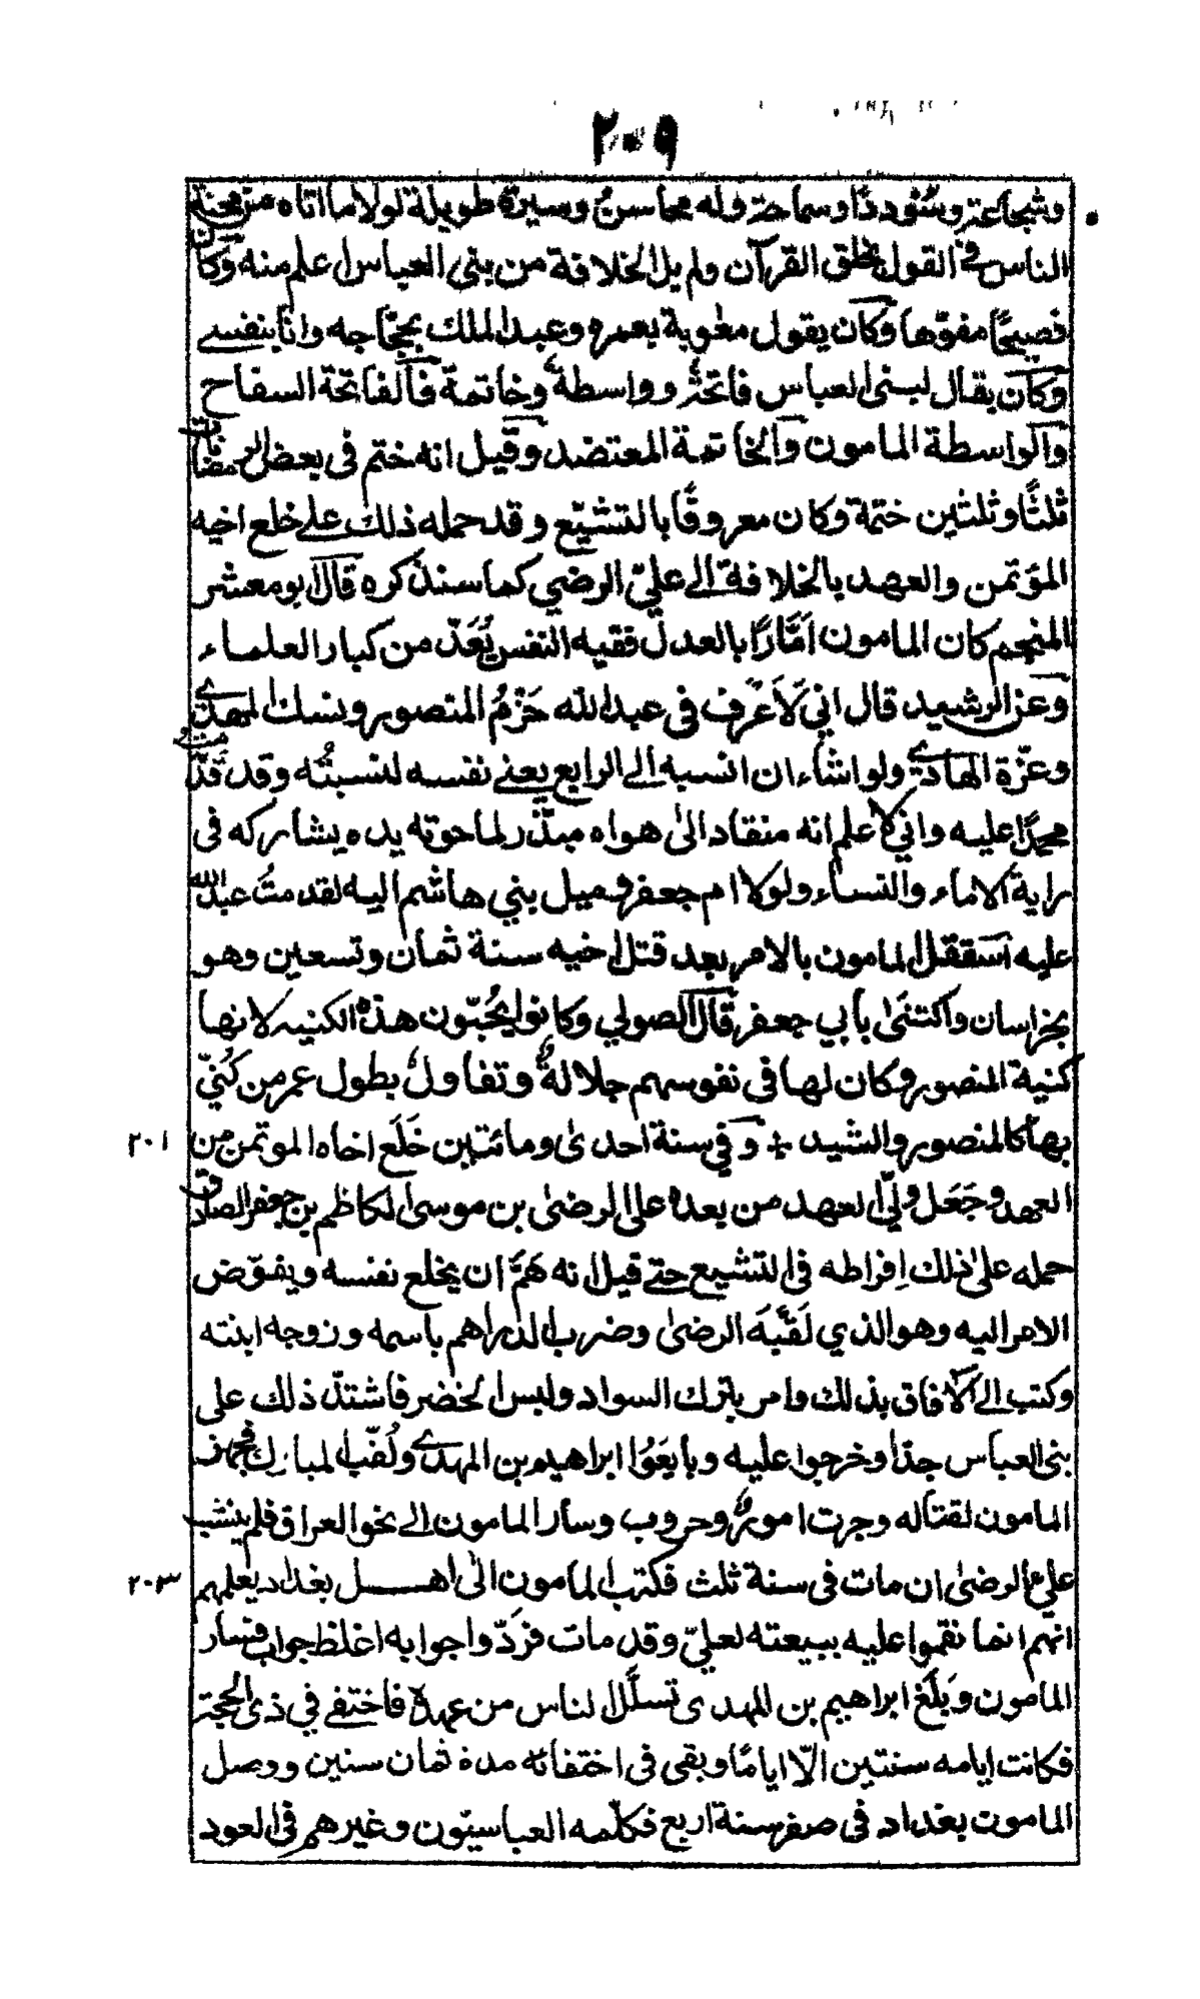 ٢٠٩
وشجاعة وسُؤددًا وسماحة وله محاسنُ وسيرةٌ طويلة لولا ما اتاه من محنة
الناس في القول بخلق القرآن ولم يل الخلافة من بني العباس اعلم منه وكان
فصيحًا مفوّها وكان يقول معٰوية بعمره وعبد الملك بحجّاجه وانا بنفسي
وكان يقال لبني العباس فاتحةٌ وواسطةٌ وخاتمة فالفاتحة السفاح
والواسطة المامون والخاتمة المعتضد وقيل انه ختم في بعض الرمضانات
ثلٰثًا وثلٰثين ختمة وكان معروفًا بالتشيّع وقد حمله ذلك على خلع اخيه
المؤتمن والعهد بالخلافة الى عليّ الرضي كما سنذكره قال ابو معشر
المنجم كان المامون امّارًا بالعدل فقيه النفس يُعَدّ من كبار العلماء
وعن الرشيد قال اني لَاَعْرِف في عبد الله حَزْمُ المنصور ونسك المهدي
وعزّة الهادي ولو اشاء ان انسبه الى الرابع يعني نفسه لنسبتُه وقد قدّمتُ
محمدًا عليه واني لاعلم انه منقاد الىٰ هواه مبذّر لما حوته يده يشاركه في
رايه الاماء والنساء ولولا ام جعفر وميل بني هاشم اليه لقدمتُ عبد الله
عليه استقل المامون بالامر بعد قتل اخيه سنة ثمان وتسعين وهو
بخراسان واكتنىٰ بابي جعفر قال الصولي وكانوا يُحبّون هذه الكنيه لانها
كنية المنصور وكان لها في نفوسهم جلالةٌ وتفاولٌ بطول عمر من كُنّي
بها كالمنصور والشيد ÷ وفي سنة احدىٰ ومائتين خَلَع اخاه الموتمن من ٢٠١
العهد وجَعَل وليّ العهد من بعده على الرضىٰ بن موسىٰ الكاظم بن جعفر الصادق
حمله علىٰ ذلك اِفراطه في التشيع حتى قيل انه هَمَّ ان يخلع نفسه ويفوّض
الامر اليه وهو الذي لَقَّبَهُ الرضىٰ وضرب الدراهم باسمه وزوجه ابنته
وكتب الى الآفاق بذلك وامر بترك السواد ولبس الخضر فاشتدّ ذلك على
بنى العباس جدّا وخرجوا عليه وبايَعَوُا ابراهيم بن المهدي ولُقّب المبارك فجهز
المامون لقتاله وجرت امورٌ وحروب وسار المامون الى نحو العراق فلم ينشب
علي الرضىٰ ان مات في سنة ثلث فكتب المامون الىٰ اهل بغداد يعلمهم ٢٠٣
انهم انما نقموا عليه ببيعته لعليّ وقد مات فَردّوا جوابه اغلظ جواب فسار
المامون وبَلَغ ابراهيم بن المهدى تسلّل الناس من عهده فاختفى في ذي الحجة
فكانت ايامه سنتين الّا ايامًا وبقى فى اختفائه مدة ثمان سنين ووصل
المامون بغداد فى صفر سنة اربع فكلّمه العباسيّون وغيرهم في العود